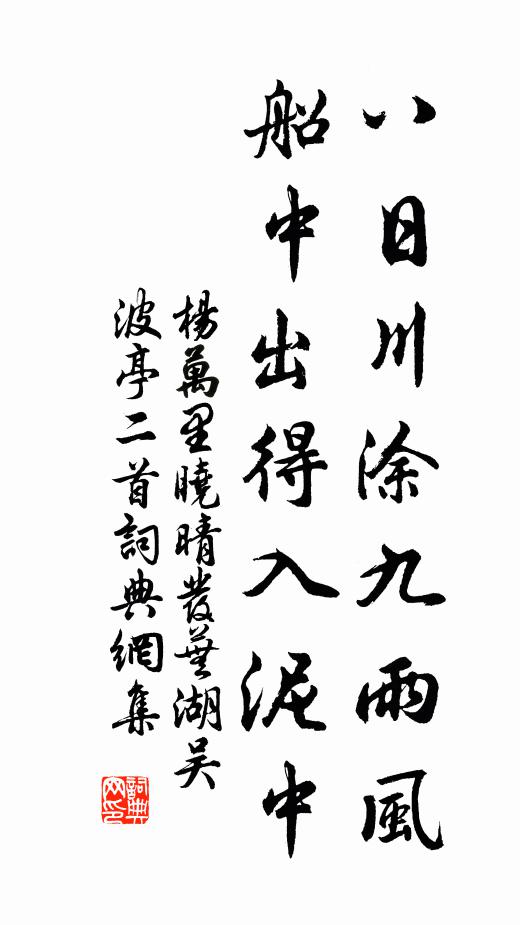 八日川涂九雨風
船中出得入泥中
楊萬里曉晴發蕪湖吴
波亭二首詞典網集
詞典
网印